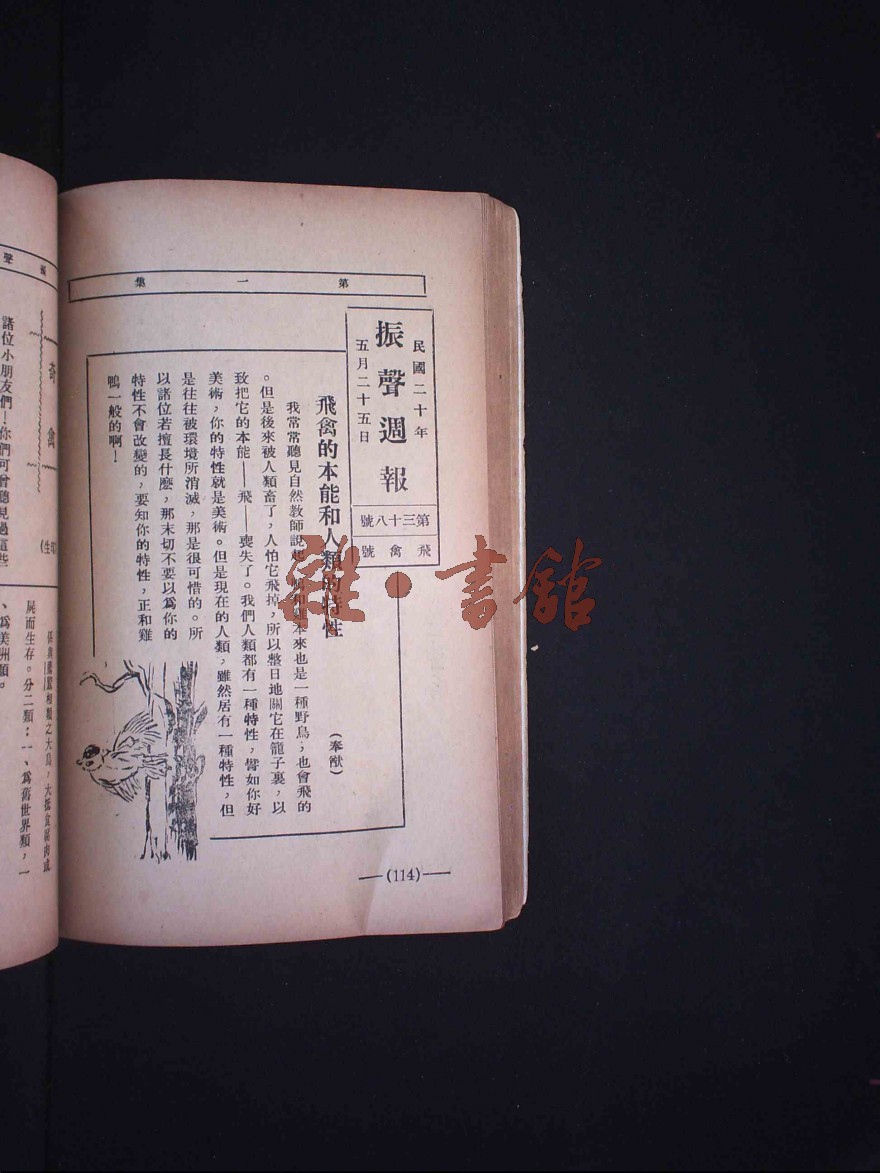 第一集
民國二十年
振聲週報
五月二十五日
第三十八號
飛禽號
飛禽的本能和人類的特性
(奉猷)
我常常聽見自然教師說起，鴨和雞本來也是一種野鳥；也會飛的
。但是後來被人類畜了，人怕它飛掉，所以整日地關它在籠子裏，以
致把它的本能——飛——喪失了。我們人類都有一種特性，譬如你好
美術，你的特性就是美術。但是現在的人類，雖然居有一種特性，但
是往往被環境所消滅，那是很可惜的。所
以諸位若擅長什麼，那末切不要以爲你的
特性不會改變的，要知你的特性，正和雞
鴨一般的啊！
(114)
聲
奇禽
諸位小朋友們！你們可曾聽見過這些
相類之大鳥，大抵食腐肉或
屍而生存。分二類：一、爲舊世界類，一
、爲美洲類。
雜·書館